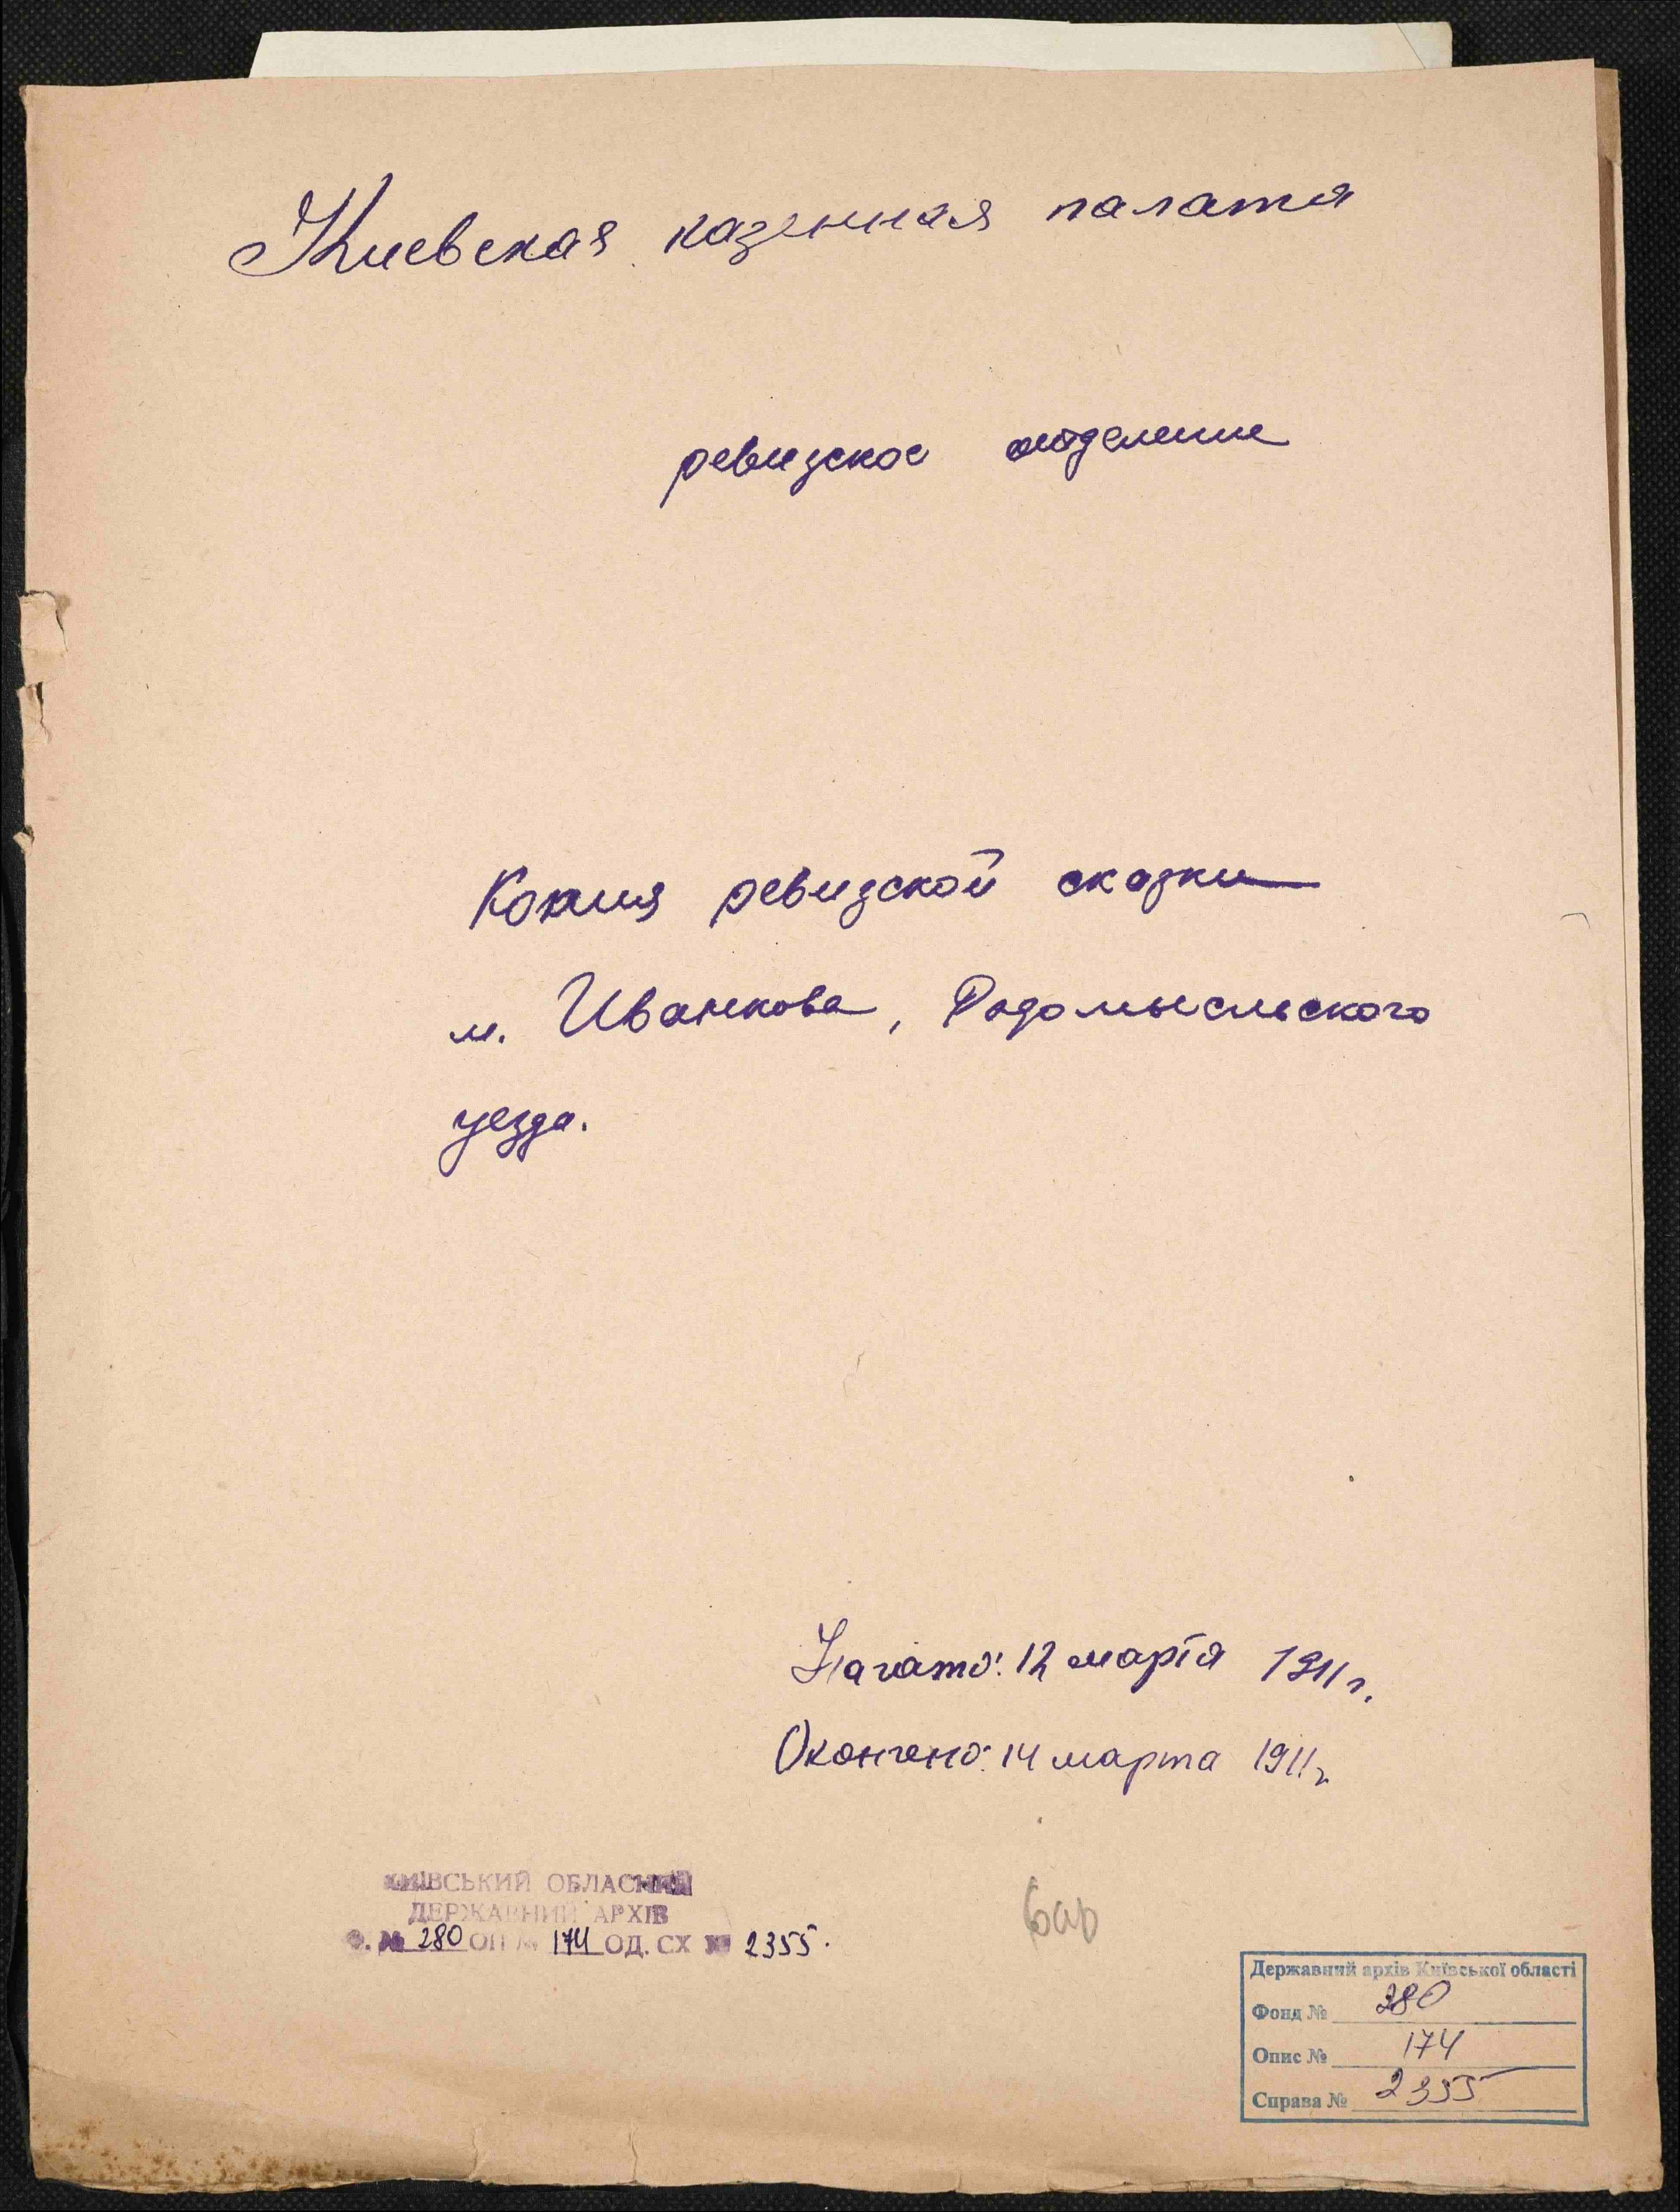 Киевская казенная палата
ревизское отделение
Копия ревизской сказки
м. Иванкова, Радомысльского
уезда.
Начато: 12 марта 1911 г.
Окончено: 14 марта 1911 г
КИЇВСЬКИЙ ОБЛАСНИЙ
ДЕРЖАВНИЙ АРХІВ
Ф. № 280 ОП № 174 ОД. СХ № 2355.
Державний архів Київської області
Фонд № 280
Опис № 174
Справа № 2355